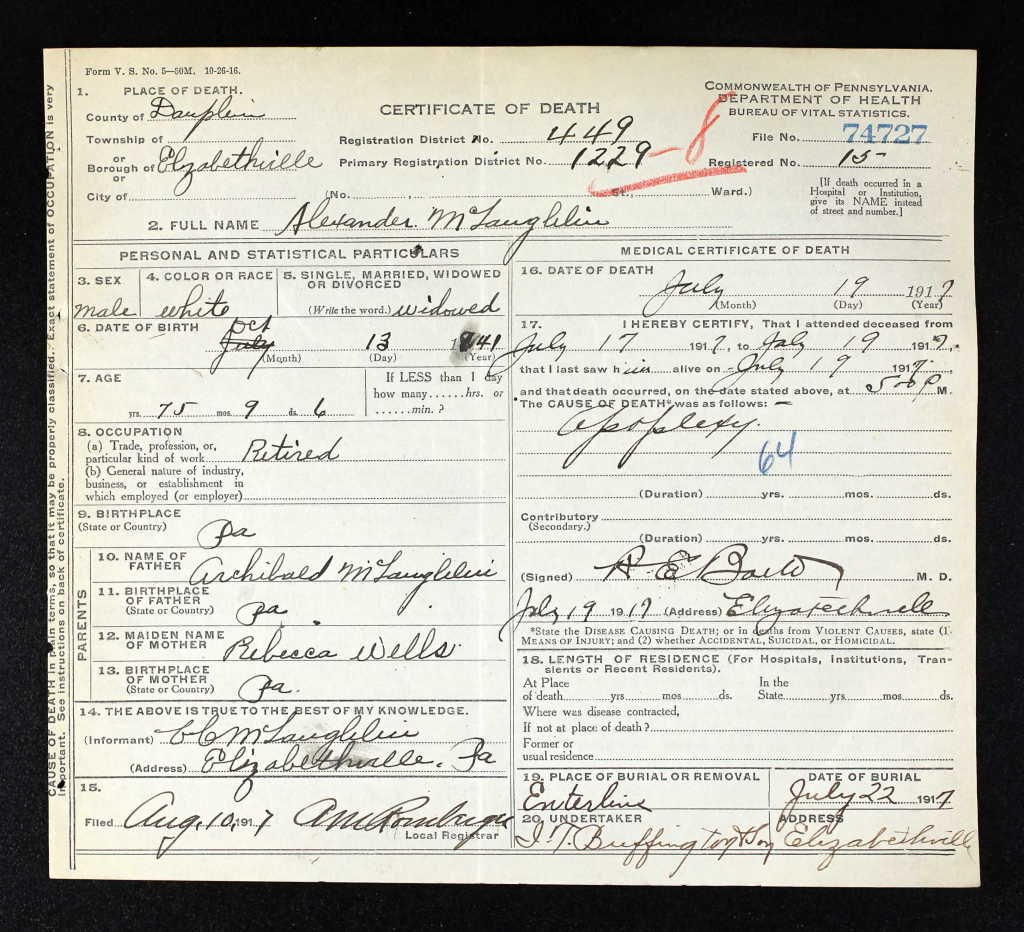 Form V. S. No. 5—50M. 10-26-16.
1. PLACE OF DEATH.
County of Dauphin
Township of
or
Borough of Elizabethville
or
City of
CERTIFICATE OF DEATH
Registration District No. 449
Primary Registration District No. 1229-8
(No. , St., Ward.)
COMMONWEALTH OF PENNSYLVANIA.
DEPARTMENT OF HEALTH
BUREAU OF VITAL STATISTICS.
File No. 74727
Registered No. 15
[If death occurred in a
Hospital or Institution,
give its NAME instead
of street and number.]
2. FULL NAME Alexander McLaughlin
PERSONAL AND STATISTICAL PARTICULARS
3. SEX
male
4. COLOR OR RACE
white
5. SINGLE, MARRIED, WIDOWED
OR DIVORCED
(Write the word.) widowed
6. DATE OF BIRTH
Oct
July 13 1841
(Month) (Day) (Year)
7. AGE
75 yrs. 9 mos. 6 ds.
If LESS than 1 day
how many......hrs. or
......min.?
8. OCCUPATION
(a) Trade, profession, or,
particular kind of work Retired
(b) General nature of industry,
business, or establishment in
which employed (or employer)
9. BIRTHPLACE
(State or Country)
Pa
PARENTS
10. NAME OF
FATHER
Archibald McLaughlin
11. BIRTHPLACE
OF FATHER
(State or Country)
Pa
12. MAIDEN NAME
OF MOTHER
Rebecca Wells
13. BIRTHPLACE
OF MOTHER
(State or Country)
Pa.
14. THE ABOVE IS TRUE TO THE BEST OF MY KNOWLEDGE.
(Informant) McLaughlin
(Address) Elizabethville, Pa
15.
Filed Aug, 10, 1917 A M Romberger
Local Registrar
MEDICAL CERTIFICATE OF DEATH
16. DATE OF DEATH
July 19 1917
(Month) (Day) (Year)
17. I HEREBY CERTIFY, That I attended deceased from
July 17 1917, to July 19 1917,
that I last saw him alive on July 19 1917,
and that death occurred, on the date stated above, at 5 00 P M.
The CAUSE OF DEATH* was as follows:
apoplexy.
64
(Duration) yrs. mos. ds.
Contributory
(Secondary.)
(Duration) yrs. mos. ds.
(Signed) R E M. D.
July 19 1917 (Address) Elizabethville
*State the DISEASE CAUSING DEATH; or in deaths from VIOLENT CAUSES, state (1)
MEANS OF INJURY; and (2) whether ACCIDENTAL, SUICIDAL, or HOMICIDAL.
18. LENGTH OF RESIDENCE (For Hospitals, Institutions, Tran-
sients or Recent Residents).
At Place In the
of death yrs mos. ds. State yrs mos. ds.
Where was disease contracted,
If not at place of death?
Former or
usual residence
19. PLACE OF BURIAL OR REMOVAL
Enterline
DATE OF BURIAL
July 22 1917
20. UNDERTAKER
I. T. Buffington & Son
ADDRESS
Elizabethville
CAUSE OF DEATH in plain terms, so that it may be properly classified. Exact statement of OCCUPATION is very
important. See instructions on back of certificate.